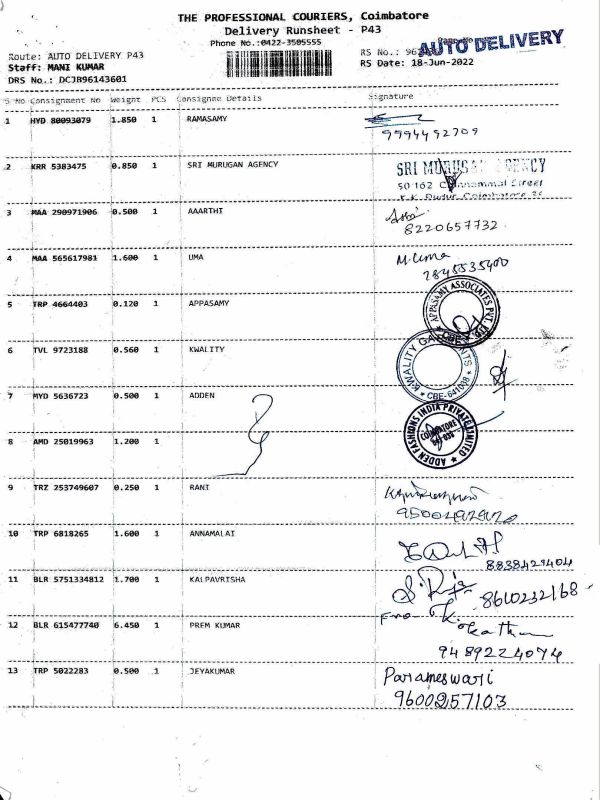 THE PROFESSIONAL COURIERS, Coimbatore
Delivery Runsheet - P43
Phone No.:0422-3505555
AUTO DELIVERY
Route: AUTO DELIVERY P43
Staff: MANI KUMAR
RS Date: 18-Jun-2022
DRS No.: DCJB96143601
S No Consignment No Weight PCS Consignee Details Signature
1 HYD 80093079 1.850 1 RAMASAMY
9994492709
2 KRR 5383475 0.850 1 SRI MURUGAN AGENCY SRI MURUGAN AGENCY
3 MAA 290971906 0.500 1 AAARTHI
8220657732
4 MAA 565617981 1.600 1 UMA M.Uma
5 TRP 4664403 0.120 1 APPASAMY APPASAMY ASSOCIATES PVT. LTD. CBE
6 TVL 9723188 0.560 1 KWALITY KWALITY GARMENTS CBE-641038
7 MYD 5636723 0.500 1 ADDEN ADDEN FASHIONS INDIA PRIVATE LIMITED COIMBATORE
8 AMD 25019963 1.200 1
9 TRZ 253749607 0.250 1 RANI
10 TRP 6818265 1.600 1 ANNAMALAI
8838429404
11 BLR 5751334812 1.700 1 KALPAVRISHA
8610232168
12 BLR 615477740 6.450 1 PREM KUMAR
9489224074
13 TRP 5022283 0.500 1 JEYAKUMAR Parameswari
9600257103